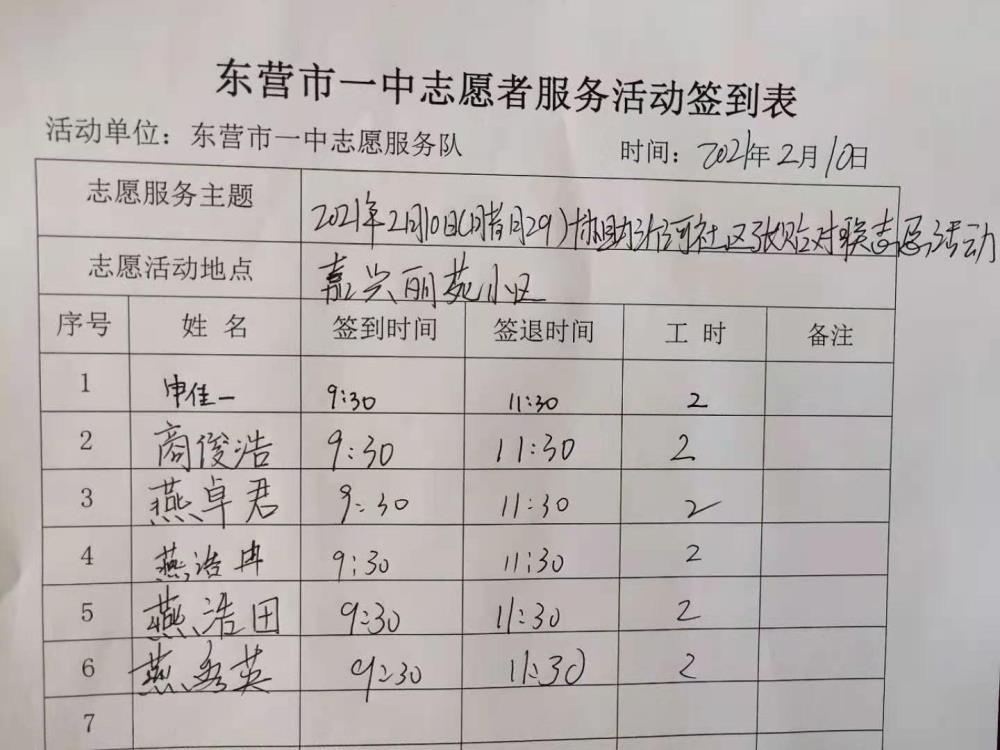 东营市一中志愿者服务活动签到表
活动单位：东营市一中志愿服务队 时间：2021年2月10日
志愿服务主题 2021年2月10日(腊月29)协助沂河社区张贴对联志愿活动
志愿活动地点 嘉兴丽苑小区
序号 姓名 签到时间 签退时间 工时 备注
1 申佳一 9:30 11:30 2
2 商俊浩 9:30 11:30 2
3 燕卓君 9:30 11:30 2
4 燕浩冉 9:30 11:30 2
5 燕浩田 9:30 11:30 2
6 燕秀英 9:30 11:30 2
7